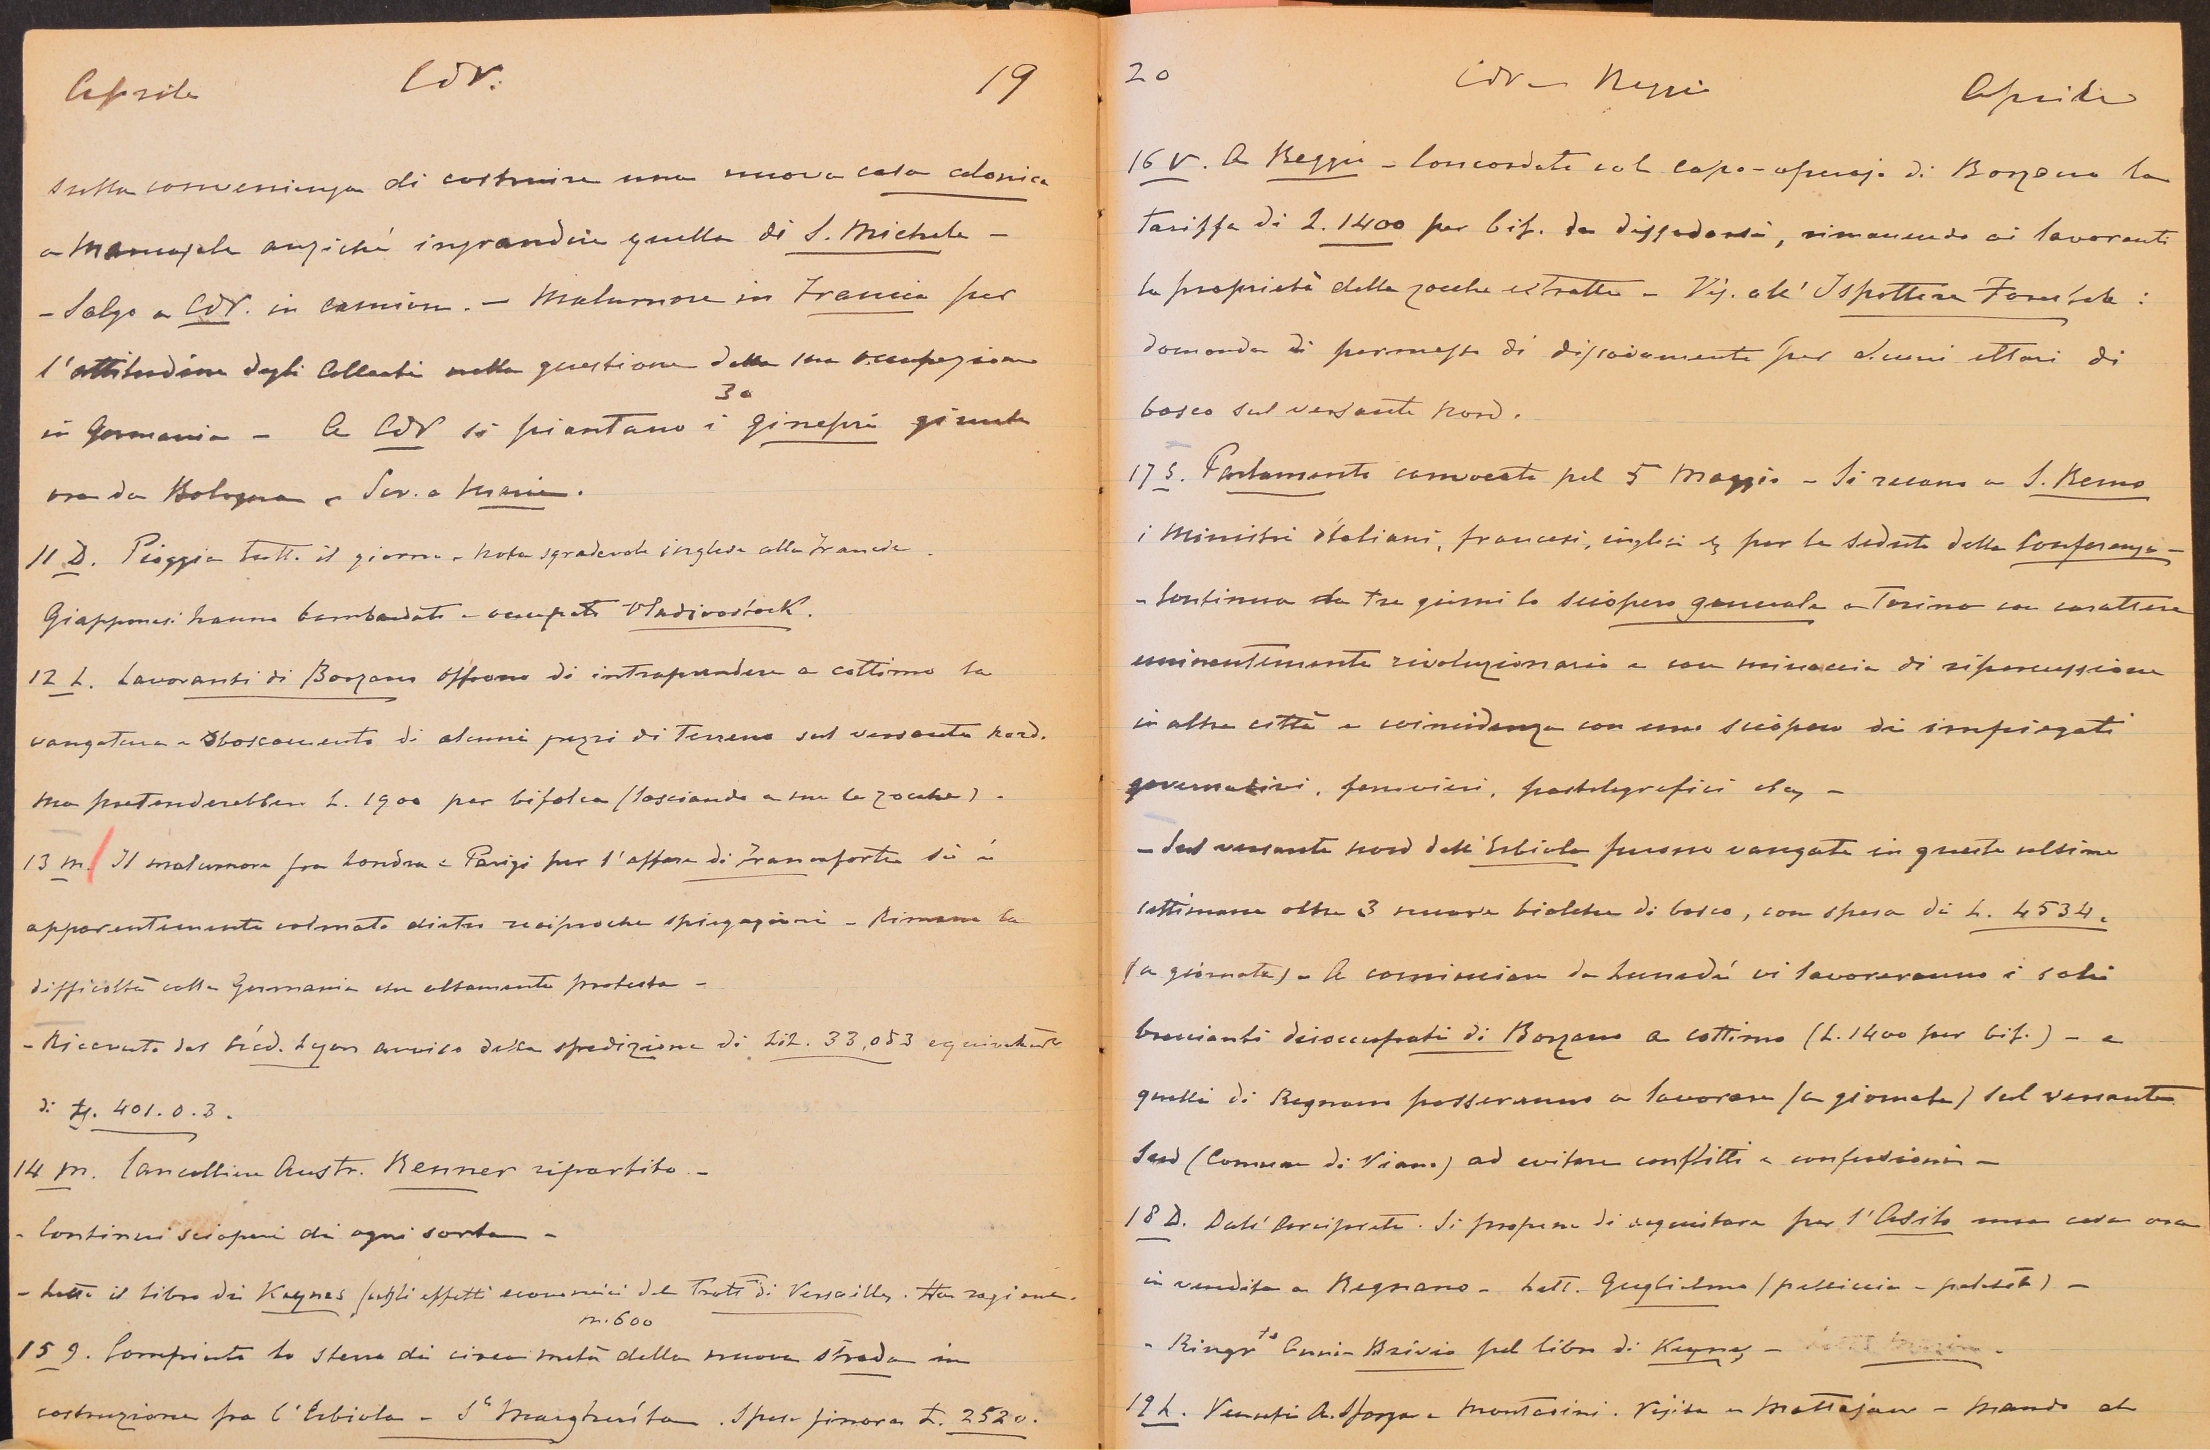 Aprile CdV. 19
sulla convenienza di costruire una nuova casa colonica
a Manugale anziché ingrandire quella di S. Michele -
- Salgo a CdV. in camion. - Malumore in Francia per
l'attitudine degli Alleati nella questione della sua occupazione
30
in Germania - A CdV si piantano i ginepri giunti
ora da Bologna - Scr. a Maria.
11 D. Pioggia tutto il giorno - Nota sgradevole inglese alla Francia.
Giapponesi hanno bombardato e occupato Vladivostock.
12 L. Lavoranti di Borzano offrono di intraprendere a cottimo la
vangatura e disboscamento di alcuni pezzi di terreno sul versante nord.
ma pretenderebbero L. 1900 per bifolca (lasciando a me le zocche).
13 M. Il malumore fra Londra e Parigi per l'affare di Francoforte si è
apparentemente calmato dietro reciproche spiegazioni - Rimane la
difficoltà colla Germania che altamente protesta -
- Ricevuto dal Créd. Lyon avviso della spedizione di Lit. 33,053 equivalente
di £. 401.0.3.
14 M. Cancelliere Austr. Renner ripartito. -
- Continui scioperi di ogni sorta -
- Letto il libro di Keynes sugli effetti economici del Tratt. di Versailles. Ha ragione.
m. 600
15 G. Compiuto lo sterro di circa metà della nuova strada in
costruzione fra l'Erbiola - Sa Margherita. Spesa finora L. 2520.
20 CdV - Reggio Aprile
16 V. A Reggio - Concordato col capo-operajo di Borzano la
tariffa di L. 1400 per bif. da dissodarsi, rimanendo ai lavoranti
la proprietà delle zocche estratte - Vis. all'Ispettore Forestale:
domanda di permesso di dissodamento per alcuni ettari di
bosco sul versante Nord.
17 S. Parlamento convocato pel 5 Maggio - Si recano a S. Remo
i Ministri Italiani, francesi, inglesi & per le sedute della Conferenza -
- Continua da tre giorni lo sciopero generale a Torino con carattere
eminentemente rivoluzionario e con minaccia di ripercussione
in altre città e coincidenza con uno sciopero di impiegati
governativi, ferrovieri, postelegrafici &c -
- Sul versante nord dell'Erbiola furono vangate in queste ultime
settimane oltre 3 nuove biolche di bosco, con spesa di L. 4534.
(a giornata) - A cominciare da Lunedì vi lavoreranno i soli
braccianti disoccupati di Borzano a cottimo (L. 1400 per bif.) - e
quelli di Regnano passeranno a lavorare (a giornata) sul versante
Sud (Comune di Viano) ad evitare conflitti e confusioni -
18 D. Dall'Arciprete. Si propone di acquistare per l'Asilo una casa ora
in vendita a Regnano - Lett. Guglielmo (pelliccia - paletot) -
- Ringrto Brivio pel libro di Keynes -
19 L. Venuti A. Sforza e Montasini. Visita a - Mando al